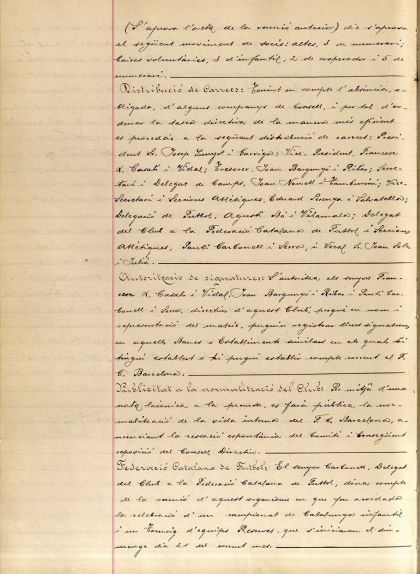 (S'aprova l'acta de la reunió anterior) dic s'aprova
el següent moviment de socis: altes, 3 de numerari;
baixes voluntàries, 3 d'infantil, 2 de cooperador i 5 de
numerari.
Distribució de Càrrecs: Tenint en compte l'absència, o-
bligada, d'alguns companys de Consell, i per tal d'or-
denar la tasca directiva de la manera més eficient
es procedeix a la següent distribució de càrrecs: Presi-
dent Sr. Josep Sunyol i Garriga; Vice-President, Francesc
X. Casals i Vidal; Tresorer, Joan Bargunyó i Ribas; Secre-
tari i Delegat de Camps, Joan Novell i; Vice-
Secretari i Seccions Atlètiques, Eduard i Salvatella;
Delegació de Futbol, Agustí Bó i Vilamala; Delegat
del Club a la Federació Catalana de Futbol i Seccions
Atlètiques, Paulí Carbonell i Serra, i Vocal Sr. Joan Solà
i Julià.
Autorització de signatures: S'autoritza els senyors Fran-
cesc X. Casals i Vidal, Joan Bargunyó i Ribas i Paulí Car-
bonell i Serra, directius d'aquest Club, perquè en nom i
representació del mateix, puguin registrar llurs signatures
en aquells Bancs o Establiments similars en els quals hi
tingui establert o hi pugui establir compte corrent el F.
C. Barcelona.
Publicitat a la normalització del Club: Per mitjà d'una
nota lacònica a la premsa, es farà pública la nor-
malització de la vida interna del F. C. Barcelona, a-
nunciant la cessació espontània del Comitè i consegüent
reposició del Consell Directiu.
Federació Catalana de Futbol: El senyor Carbonell, Delegat
del Club a la Federació Catalana de Futbol, dóna compte
de la reunió d'aquest organisme en que fou acordada
la celebració d'un campionat de Catalunya infantil
i un Torneig d'equips Reserves, que s'iniciaran el diu-
menge dia 21 del corrent mes.